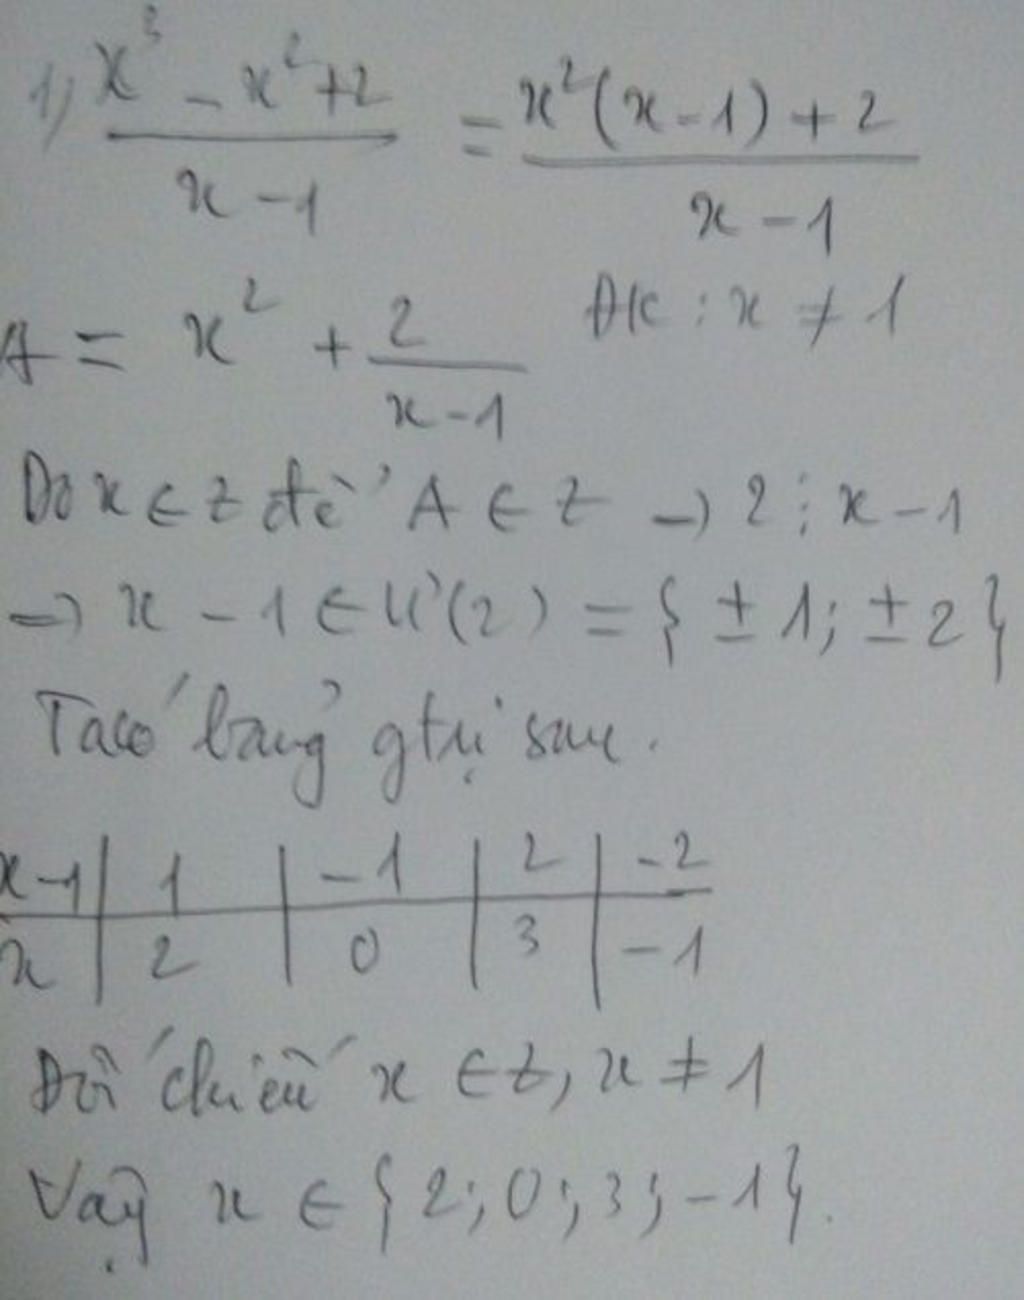 1) \frac{x^3 - x^2 + 2}{x - 1} = \frac{x^2(x - 1) + 2}{x - 1}
A = x^2 + \frac{2}{x - 1} ĐK : x ≠ 1
Do x ∈ Z để A ∈ Z → 2 ⋮ x - 1
⇒ x - 1 ∈ Ư(2) = { ± 1; ± 2 }
Ta có bảng gtrị sau.
x-1 | 1 | -1 | 2 | -2
x | 2 | 0 | 3 | -1
Đối chiếu x ∈ Z, x ≠ 1
Vậy x ∈ { 2; 0; 3; -1 }.